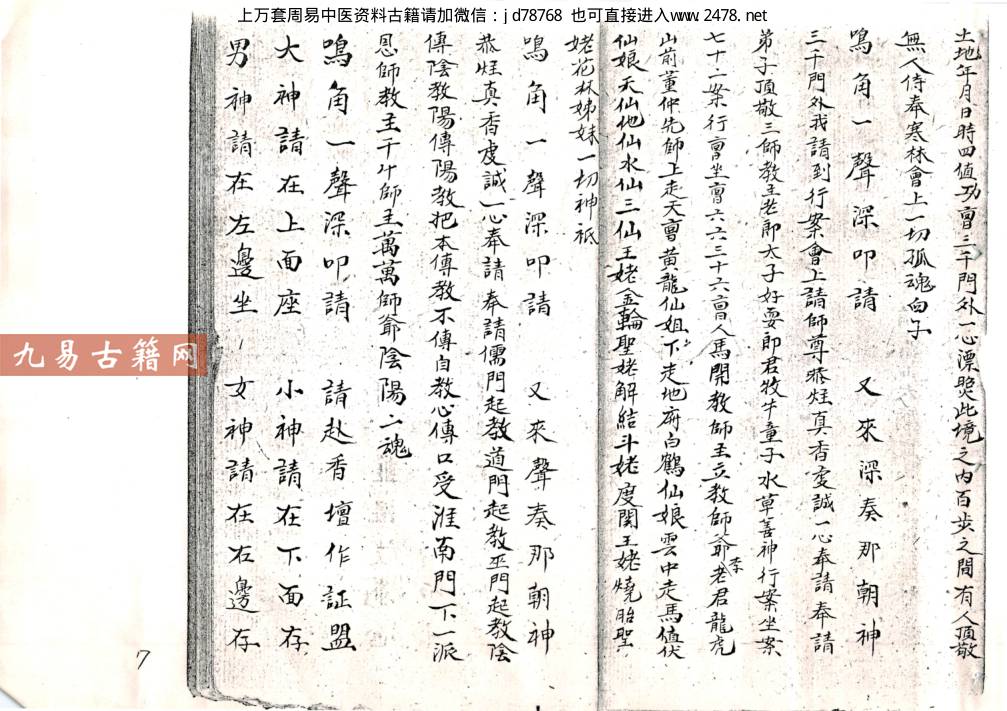 上万套周易中医资料古籍请加微信：jd78768 也可直接进入www.2478.net
土地年月日時四值功曹三千門外一心漂㷠此境之内百步之間有人頂敬
無人侍奉寒林會上一切孤魂由子
鳴角一聲深叩請 又來深奏那朝神
三千門外我請到行案會上請師尊恭炷真香虔誠一心奉請奉請
弟子頂敬三師教主老郎太子好耍郎君牧牛童子水草善神行案坐案
七十二案行曹坐曹六六三十六曹人馬開教師主立教師爺李老君龍虎
山前董仲先師上走天曹黄龍仙姐下走地府白鶴仙娘雲中走馬值伏
仙娘天仙地仙水仙三仙王姥金輪聖姥解結斗姥度関王姥燒胎聖
姥花林姊妹一切神祇
鳴角一聲深叩請 又來聲奏那朝神
恭炷真香虔誠一心奉請奉請儒門起教道門起教巫門起教陰
傳陰教陽傳陽教把本傳教不傳自教心傳口受淮南門下一派
恩師教主千千師主萬萬師爺陰陽二魂
鳴角一聲深叩請 請赴香壇作証盟
大神請在上面座 小神請在下面存
男神請在左邊坐 女神請在右邊存
7
九易古籍网